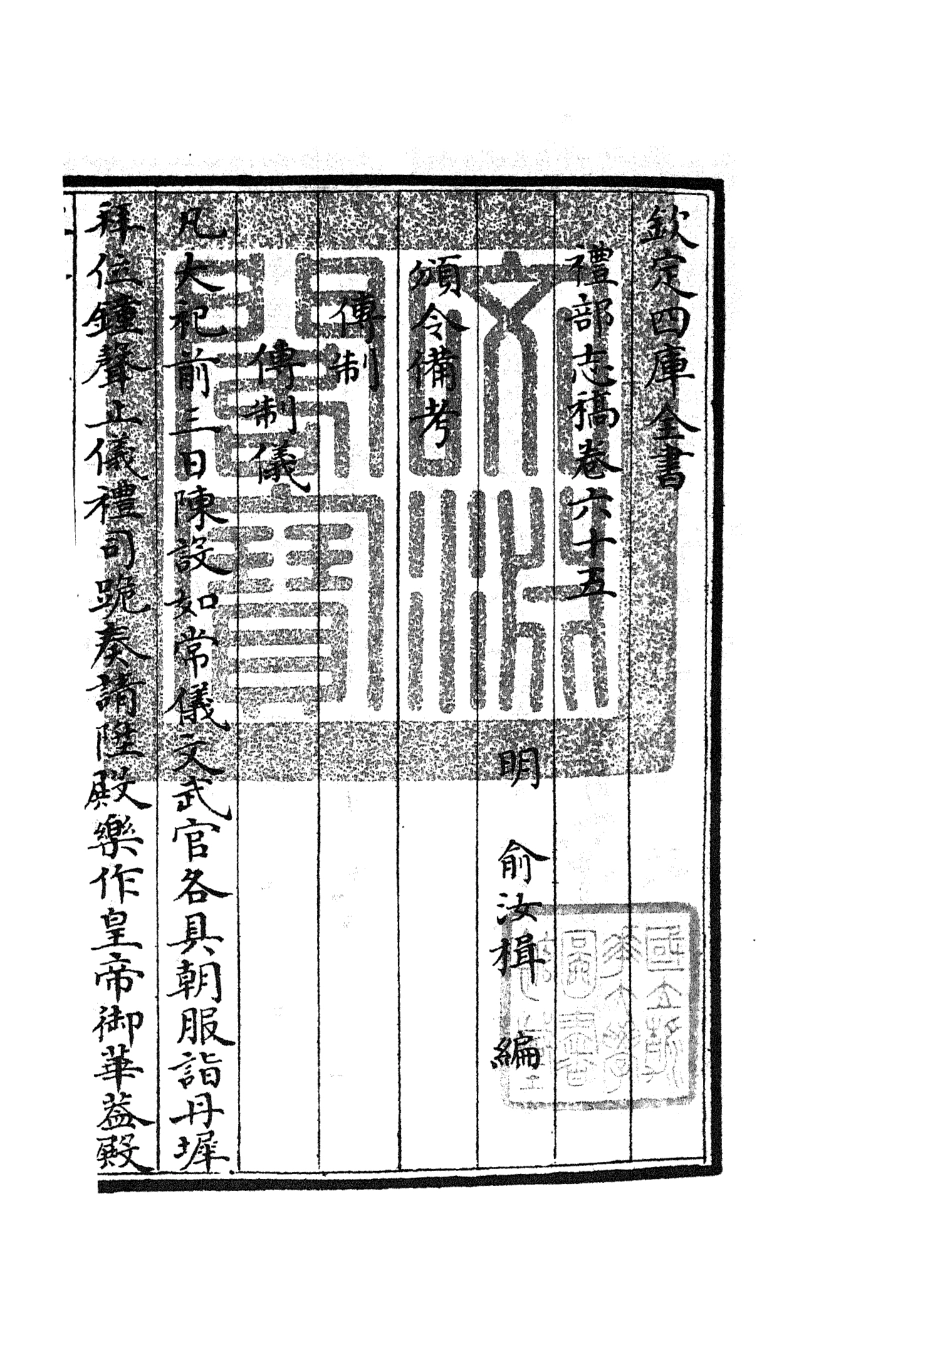 欽定四庫全書
禮部志稿卷六十五
明 俞汝楫 編
頒令備考
傳制
傳制儀
凡大祀前三日陳設如常儀文武官各具朝服詣丹墀
拜位鐘聲止儀禮司跪奏請陞殿樂作皇帝御華葢殿
文淵閣寶
國立浙江大學圖書館藏